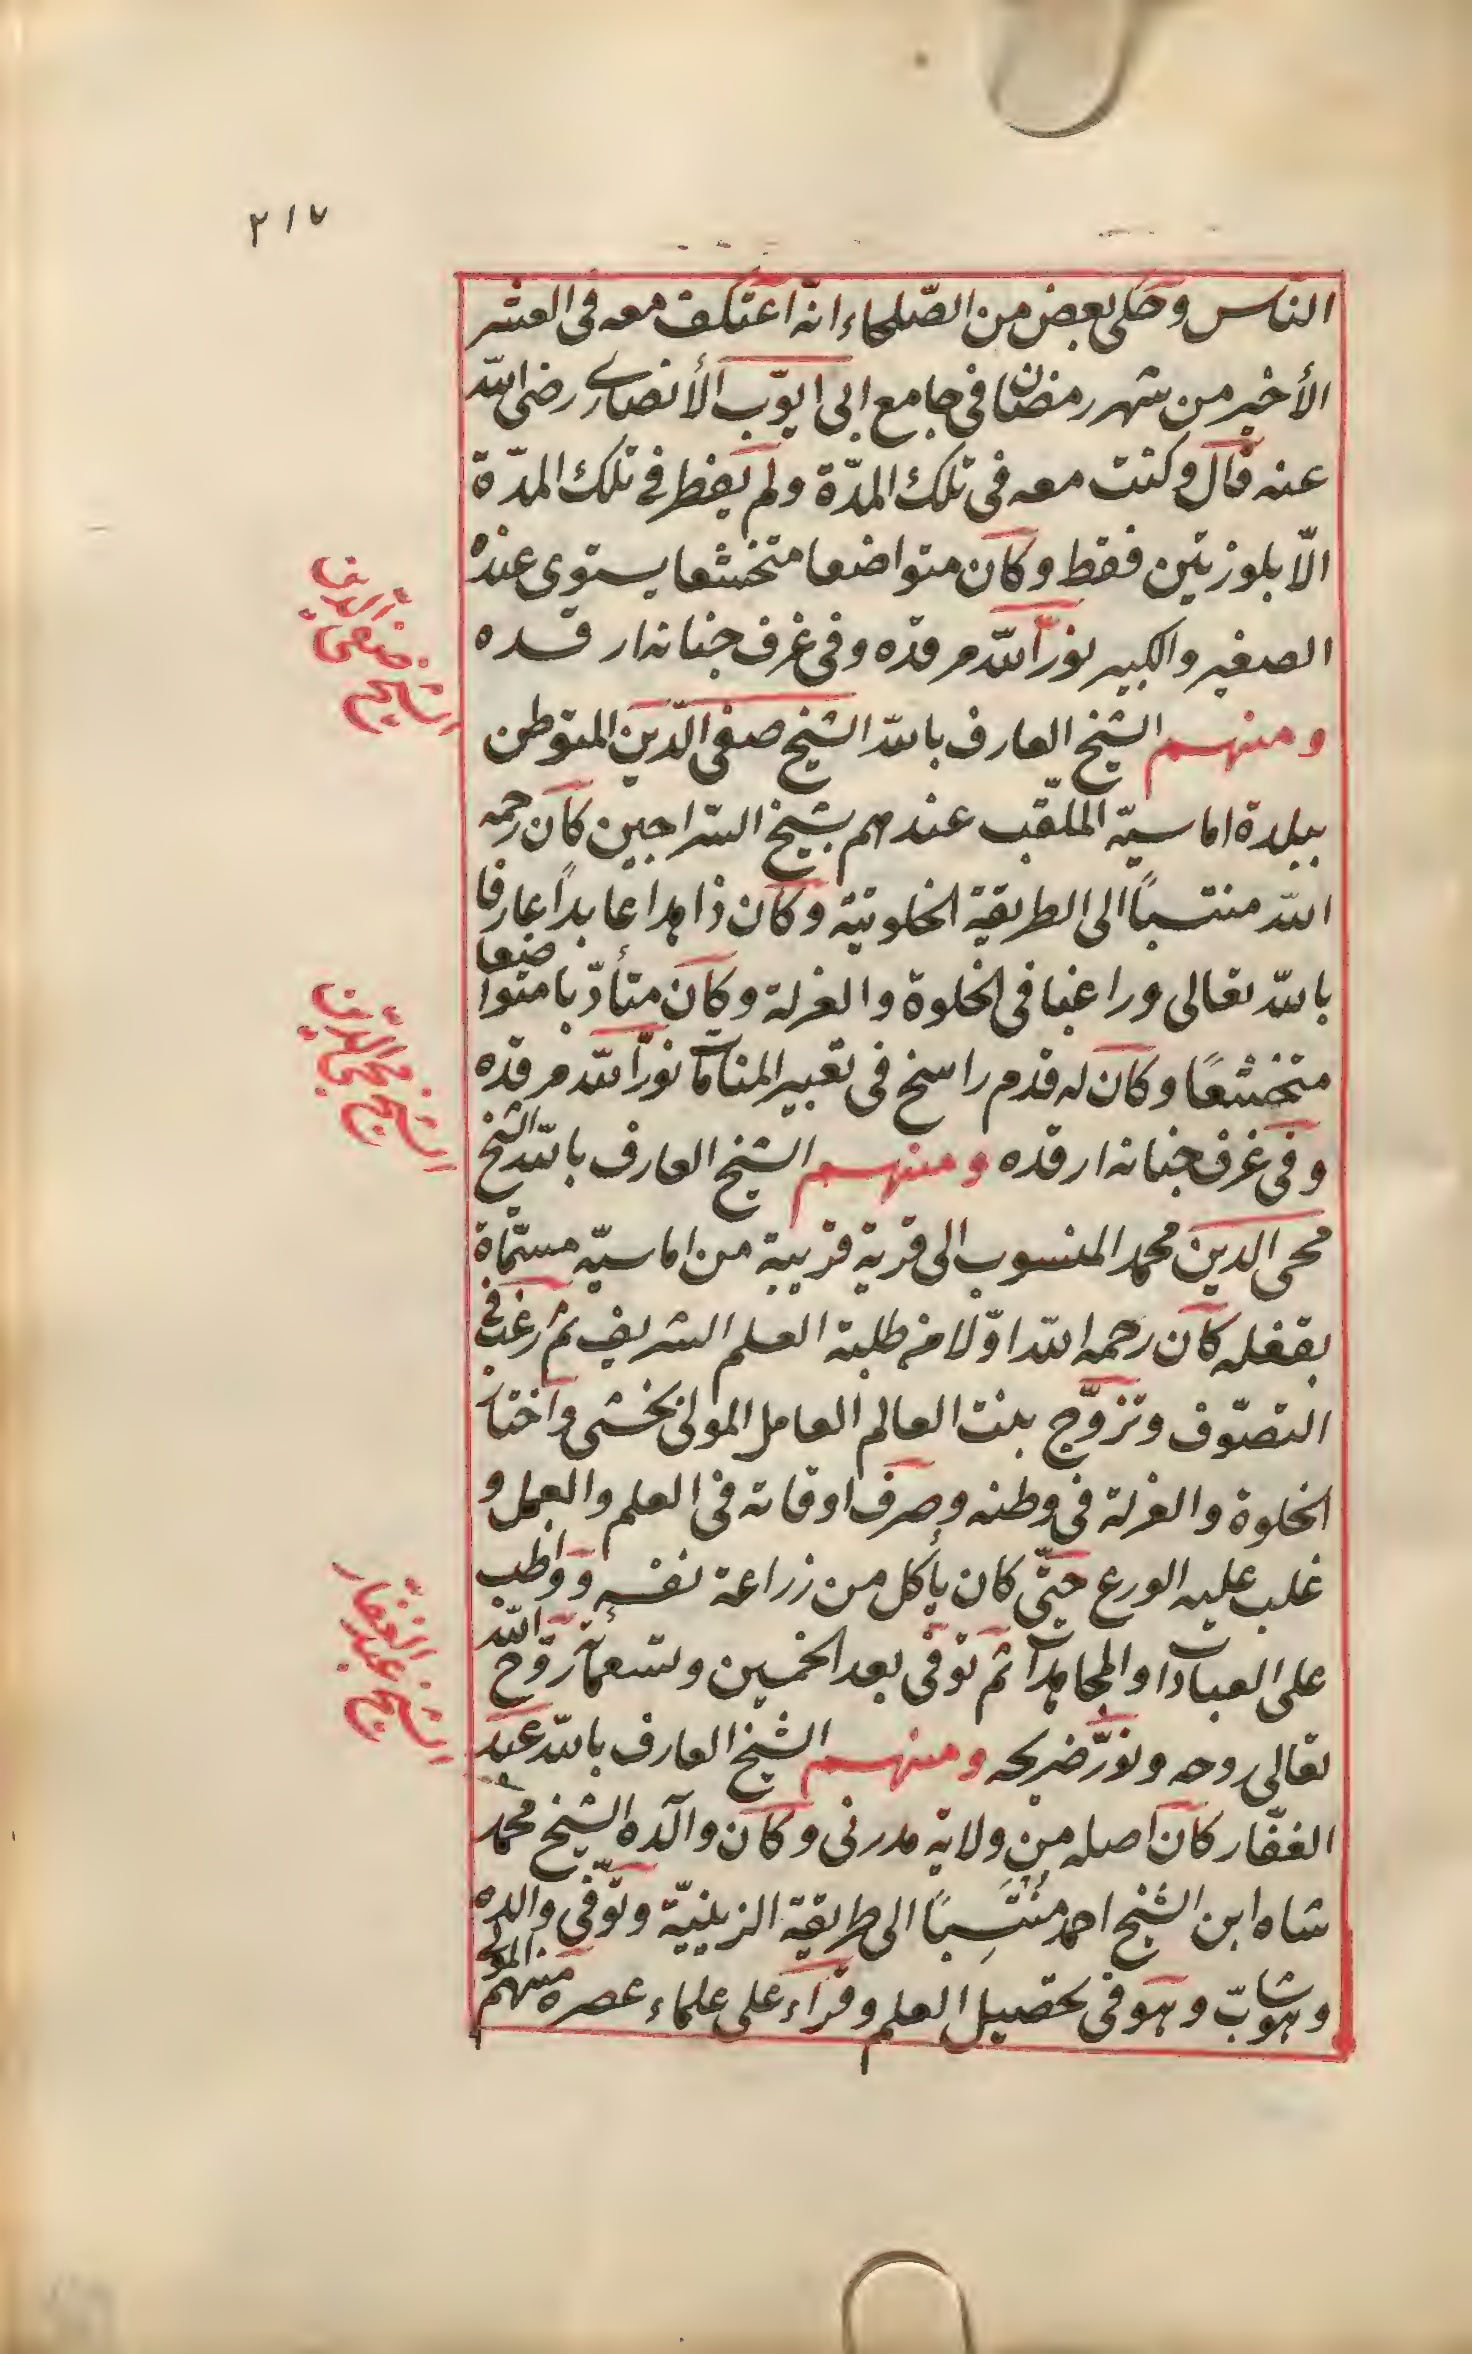 ٢١٧
الناس وحكى بعض من الصّلحاء انّه اعتكف معه فى العشر
الأخير من شهر رمضان فى جامع ابى ايّوب الأنصارى رضى الله
عنه قال وكنت معه فى تلك المدّة ولم يفطر فى تلك المدّة
الّا بلوزتين فقط وكان متواضعا متخشعا يستوى عنده
الصغير والكبير نوّر الله مرقده وفى غرف جنانه ارقده
ومنهم الشيخ العارف بالله الشيخ صفى الدّين المتوطن
ببلدة اماسيّه الملقّب عندهم بشيخ السّراجين كان رحمه
الله منتسباً الى الطريقة الخلوتية وكان زاهدا عابداً عارفا
بالله تعالى وراغبا فى الخلوة والعزلة وكان متأدّبا متواضعا
متخشعًا وكان له قدم راسخ فى تعبير المنامات نوّر الله مرقده
وفى غرف جنانه ارقده ومنهم الشيخ العارف بالله الشيخ
محى الدين محمد المنسوب الى قرية قريبة من اماسيّه مسمّاة
بقفله كان رحمه الله اوّلا من طلبة العلم الشريف ثم رغب فى
التصوّف وتزوّج بنت العالم العامل المولى بخشى واختار
الخلوة والعزلة فى وطنه وصرف اوقاته فى العلم والعمل و
غلب عليه الورع حتّى كان يأكل من زراعة نفسه وواظب
على العبادات والمجاهدات ثم توفى بعد الخمسين وتسعمائة روّح الله
تعالى روحه ونوّر ضريحه ومنهم الشيخ العارف بالله عبد
الغفّار كان اصله من ولاية مدرنى وكان والده الشيخ محمد
شاه ابن الشيخ احمد منتسباً الى طريقة الزينيّة وتوفّى والده
وهو شابّ وهو فى تحصيل العلم وقرأ على علماء عصره منهم المولى
الشيخ صفى الدين
الشيخ محى الدين
الشيخ عبد الغفار